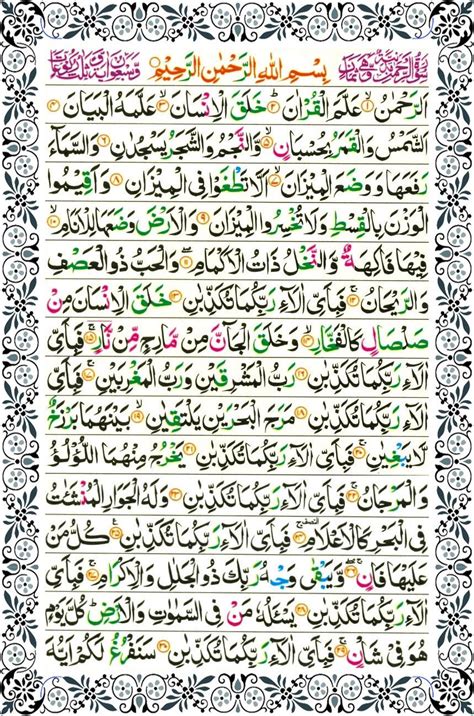 بِسْمِ اللهِ الرَّحْمٰنِ الرَّحِيْمِ
اَلرَّحْمٰنُ ۙ﴿۱﴾ عَلَّمَ الْقُرْاٰنَ ؕ﴿۲﴾ خَلَقَ الْاِنْسَانَ ۙ﴿۳﴾ عَلَّمَهُ الْبَيَانَ ﴿۴﴾
اَلشَّمْسُ وَالْقَمَرُ بِحُسْبَانٍ ﴿۵﴾ وَّالنَّجْمُ وَالشَّجَرُ يَسْجُدٰنِ ﴿۶﴾ وَالسَّمَآءَ
رَفَعَهَا وَوَضَعَ الْمِيْزَانَ ۙ﴿۷﴾ اَلَّا تَطْغَوْا فِى الْمِيْزَانِ ﴿۸﴾ وَاَقِيْمُوا
الْوَزْنَ بِالْقِسْطِ وَلَا تُخْسِرُوا الْمِيْزَانَ ﴿۹﴾ وَالْاَرْضَ وَضَعَهَا لِلْاَنَامِ ۙ﴿۱۰﴾
فِيْهَا فَاكِهَةٌ ۙ وَّالنَّخْلُ ذَاتُ الْاَكْمَامِ ۖ﴿۱۱﴾ وَالْحَبُّ ذُو الْعَصْفِ
وَالرَّيْحَانُ ۚ﴿۱۲﴾ فَبِاَىِّ اٰلَآءِ رَبِّكُمَا تُكَذِّبٰنِ ﴿۱۳﴾ خَلَقَ الْاِنْسَانَ مِنْ
صَلْصَالٍ كَالْفَخَّارِ ۙ﴿۱۴﴾ وَخَلَقَ الْجَآنَّ مِنْ مَّارِجٍ مِّنْ نَّارٍ ۚ﴿۱۵﴾ فَبِاَىِّ
اٰلَآءِ رَبِّكُمَا تُكَذِّبٰنِ ﴿۱۶﴾ رَبُّ الْمَشْرِقَيْنِ وَرَبُّ الْمَغْرِبَيْنِ ۚ﴿۱۷﴾ فَبِاَىِّ
اٰلَآءِ رَبِّكُمَا تُكَذِّبٰنِ ﴿۱۸﴾ مَرَجَ الْبَحْرَيْنِ يَلْتَقِيٰنِ ۙ﴿۱۹﴾ بَيْنَهُمَا بَرْزَخٌ
لَّا يَبْغِيٰنِ ۚ﴿۲۰﴾ فَبِاَىِّ اٰلَآءِ رَبِّكُمَا تُكَذِّبٰنِ ﴿۲۱﴾ يَخْرُجُ مِنْهُمَا اللُّؤْلُؤُ
وَالْمَرْجَانُ ۚ﴿۲۲﴾ فَبِاَىِّ اٰلَآءِ رَبِّكُمَا تُكَذِّبٰنِ ﴿۲۳﴾ وَلَهُ الْجَوَارِ الْمُنْشَئٰتُ
فِى الْبَحْرِ كَالْاَعْلَامِ ۚ﴿۲۴﴾ فَبِاَىِّ اٰلَآءِ رَبِّكُمَا تُكَذِّبٰنِ ﴿۲۵﴾ كُلُّ مَنْ
عَلَيْهَا فَانٍ ۖ﴿۲۶﴾ وَّيَبْقٰى وَجْهُ رَبِّكَ ذُو الْجَلٰلِ وَالْاِكْرَامِ ۚ﴿۲۷﴾ فَبِاَىِّ
اٰلَآءِ رَبِّكُمَا تُكَذِّبٰنِ ﴿۲۸﴾ يَسْئَلُهٗ مَنْ فِى السَّمٰوٰتِ وَالْاَرْضِ ؕ كُلَّ يَوْمٍ
هُوَ فِىْ شَاْنٍ ۚ﴿۲۹﴾ فَبِاَىِّ اٰلَآءِ رَبِّكُمَا تُكَذِّبٰنِ ﴿۳۰﴾ سَنَفْرُغُ لَكُمْ اَيُّهَ